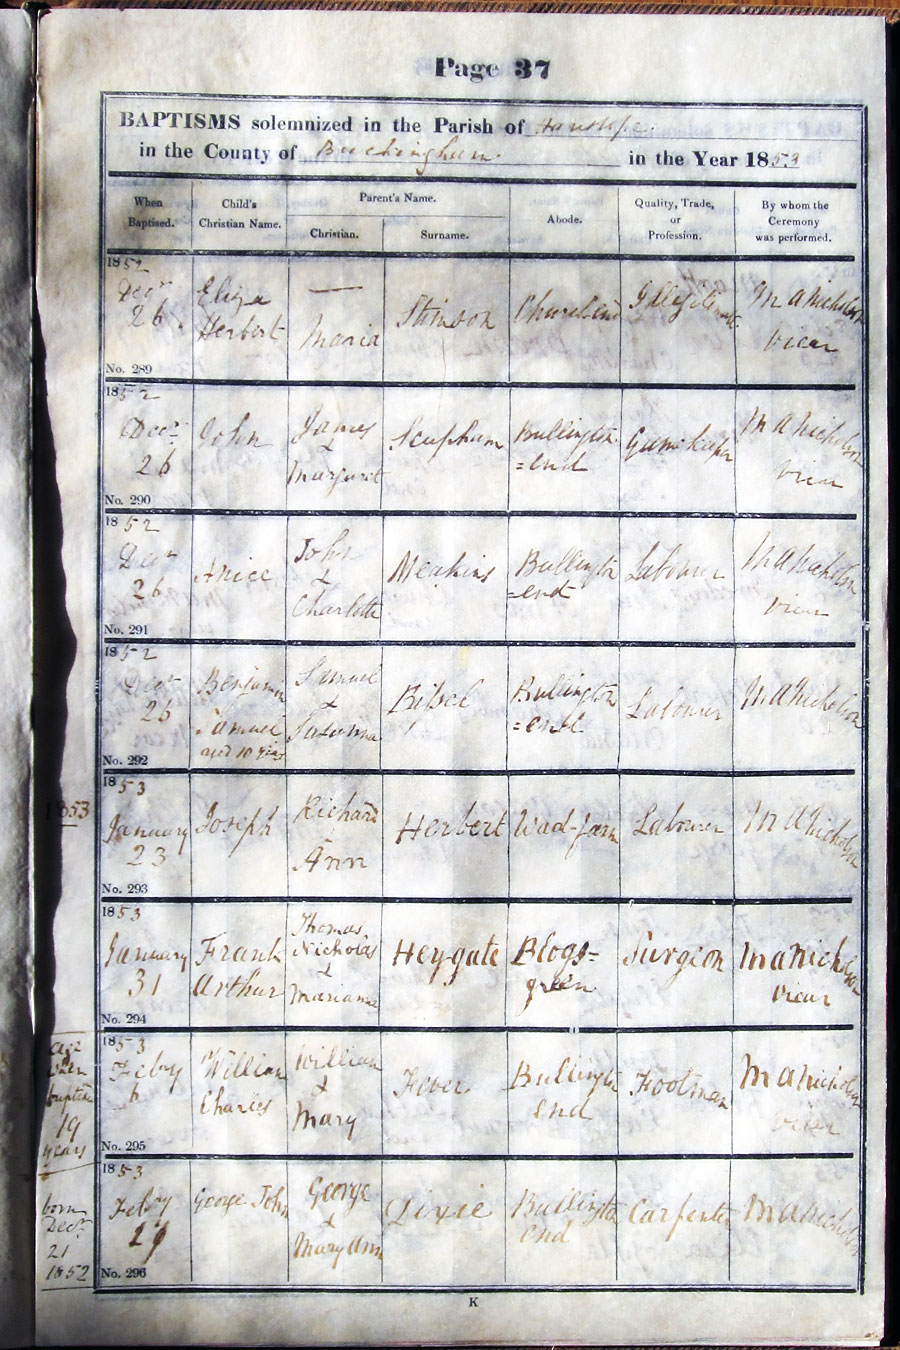 Page 37
BAPTISMS solemnized in the Parish of Hanslope.
in the County of Buckingham in the Year 1853
When Baptised.
Child's Christian Name.
Parent's Name.
Christian.
Surname.
Abode.
Quality, Trade, or Profession.
By whom the Ceremony was performed.
1852
Decr
26
No. 289
Eliza
Herbert
—
Maria
Stimson
Church end
Illegitimate
M A Nicholson
Vicar
1852
Decr
26
No. 290
John
James
&
Margaret
Scupham
Bullington
=end
Gamekeeper
M A Nicholson
Vicar
1852
Decr
26
No. 291
Annice
John
&
Charlotte
Meakins
Bullington
=end
Labourer
M A Nicholson
Vicar
1852
Decr
26
No. 292
Benjamin
Samuel
aged 10 years
Samuel
&
Susanna
Bullington
=end
Labourer
M A Nicholson
1853
1853
January
23
No. 293
Joseph
Richard
Ann
Herbert
Labourer
M A Nicholson
1853
January
31
No. 294
Frank
Arthur
Thomas
Nicholas
&
Marianne
Heygate
green
Surgeon
M A Nicholson
Vicar
age
when
baptized
19
years
1853
Feby
6
No. 295
William
Charles
William
&
Mary
Fever
Bullington
end
Footman
M A Nicholson
Vicar
born
Decr
21
1852
1853
Feby
No. 296
George John
George
&
Mary Ann
Dixie
Bullington
end
Carpenter
M A Nicholson
K